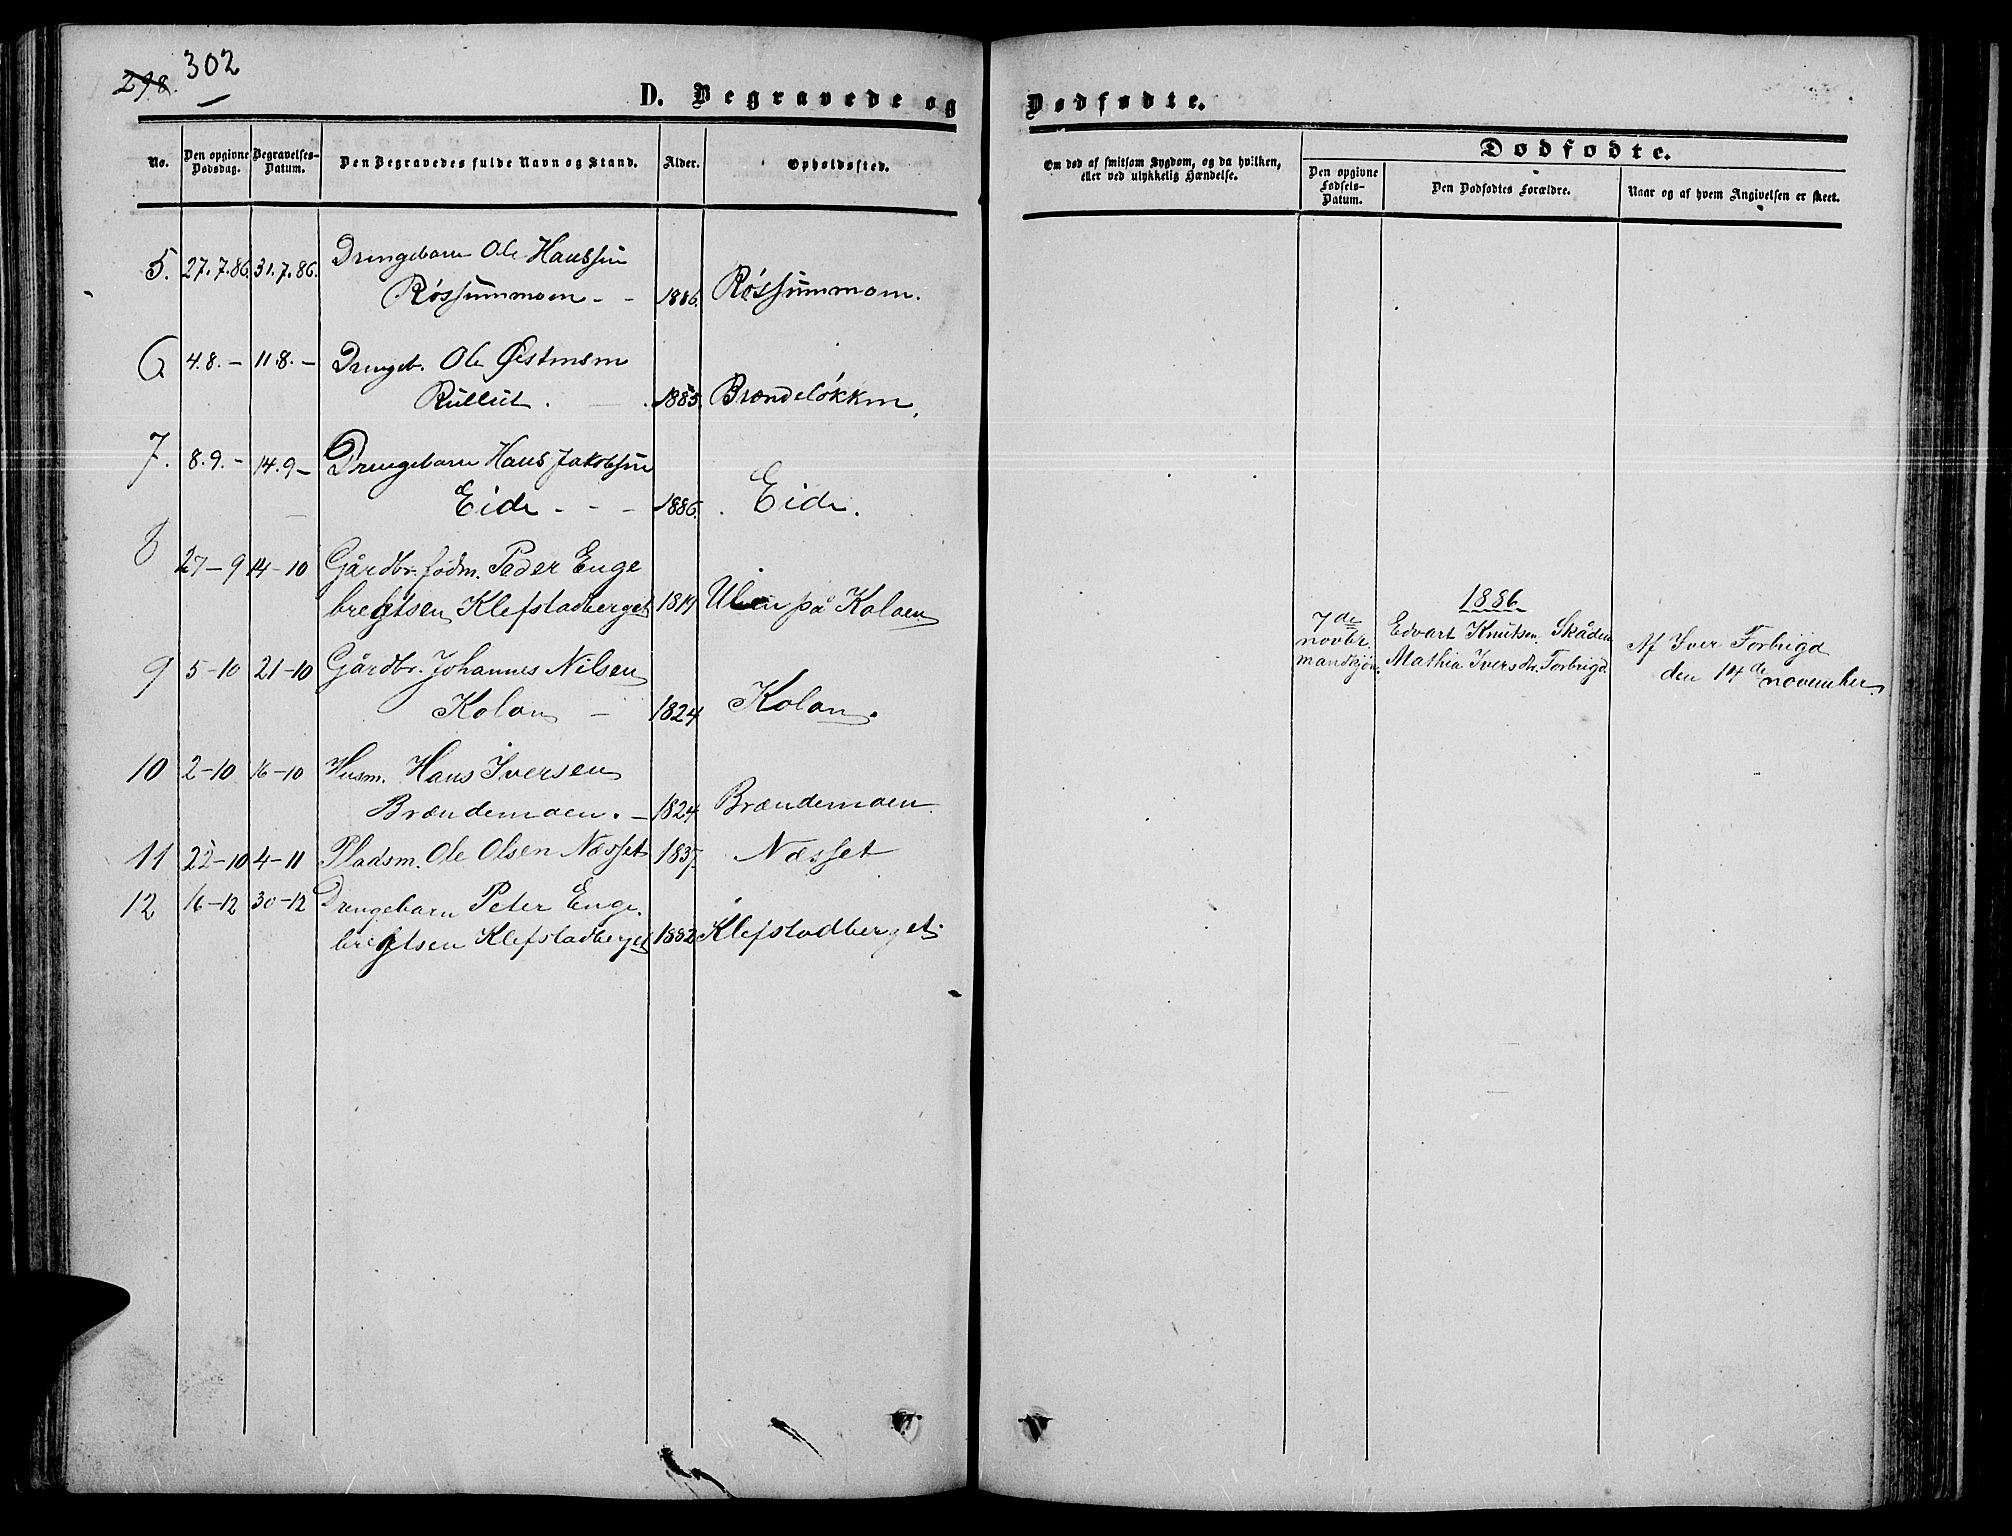 298. 302
D. Begravede og Dødfødte.
No. Den opgivne Dødsdag. Begravelses-Datum. Den Begravedes fulde Navn og Stand. Alder. Opholdssted.
Om død af smitsom Sygdom, og da hvilken, eller ved ulykkelig Hændelse.
Dødfødte.
Den opgivne Fødsels-Datum. Den Dødfødtes Forældre. Naar og af hvem Angivelsen er skeet.
5. 27.7.86. 31.7.86. Drengebarn Ole Hanssen
Røssummoen - - 1886. Røssummoen.
6. 4.8. - 11.8. - Drengeb. Ole Østensen
Rullut . 1885. Brændeløkken,
7. 8.9. - 14.9 - Drengebarn Hans Jakobsen
Eide - - - 1886. Eide.
8 27-9 14-10 Gårdbr. fødm. Peder Enge
bregtsen Klefstadberget 1819 Ulen på Koloen
9 5-10 21-10 Gårdbr. Johannes Nilsen
Koloen - 1824 Koloen.
10 2-10 16-10 Husm. Hans Iversen
Brændemoen. - 1824 Brændemoen
11 22-10 4-11 Pladsm. Ole Olsen Næsset 1837. Næsset
12 16-12 30-12 Drengebarn Peter Enge.
bregtsen Klefstadberget 1882 Klefstadberget.
1886
7de novbr. mandkjøn. Edvart Knutsen Skåden
Mathia Iversdr. Forbrigd.
Af Iver Forbrigd
den 14de november.